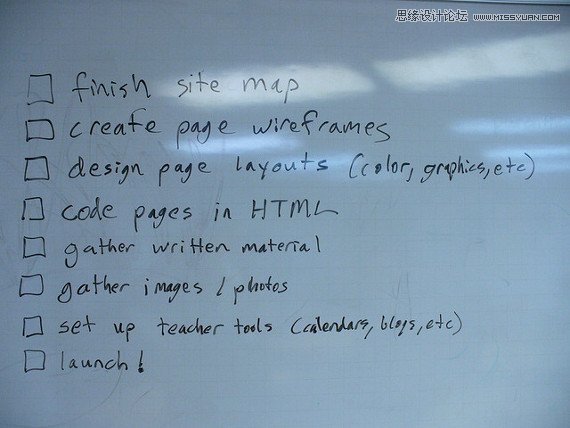 思缘设计论坛 WWW.MISSYUAN.COM
finish site map
create page wireframes
design page layouts (color, graphics, etc)
code pages in HTML
gather written material
gather images / photos
set up teacher tools (calendars, blogs, etc)
launch!